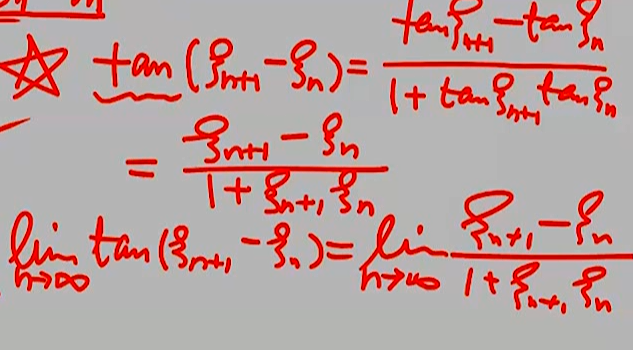 ☆ tan(ξₙ₊₁ - ξₙ) = (tan ξₙ₊₁ - tan ξₙ) / (1 + tan ξₙ₊₁ tan ξₙ)
= (ξₙ₊₁ - ξₙ) / (1 + ξₙ₊₁ ξₙ)
lim n→∞ tan(ξₙ₊₁ - ξₙ) = lim n→∞ (ξₙ₊₁ - ξₙ) / (1 + ξₙ₊₁ ξₙ)